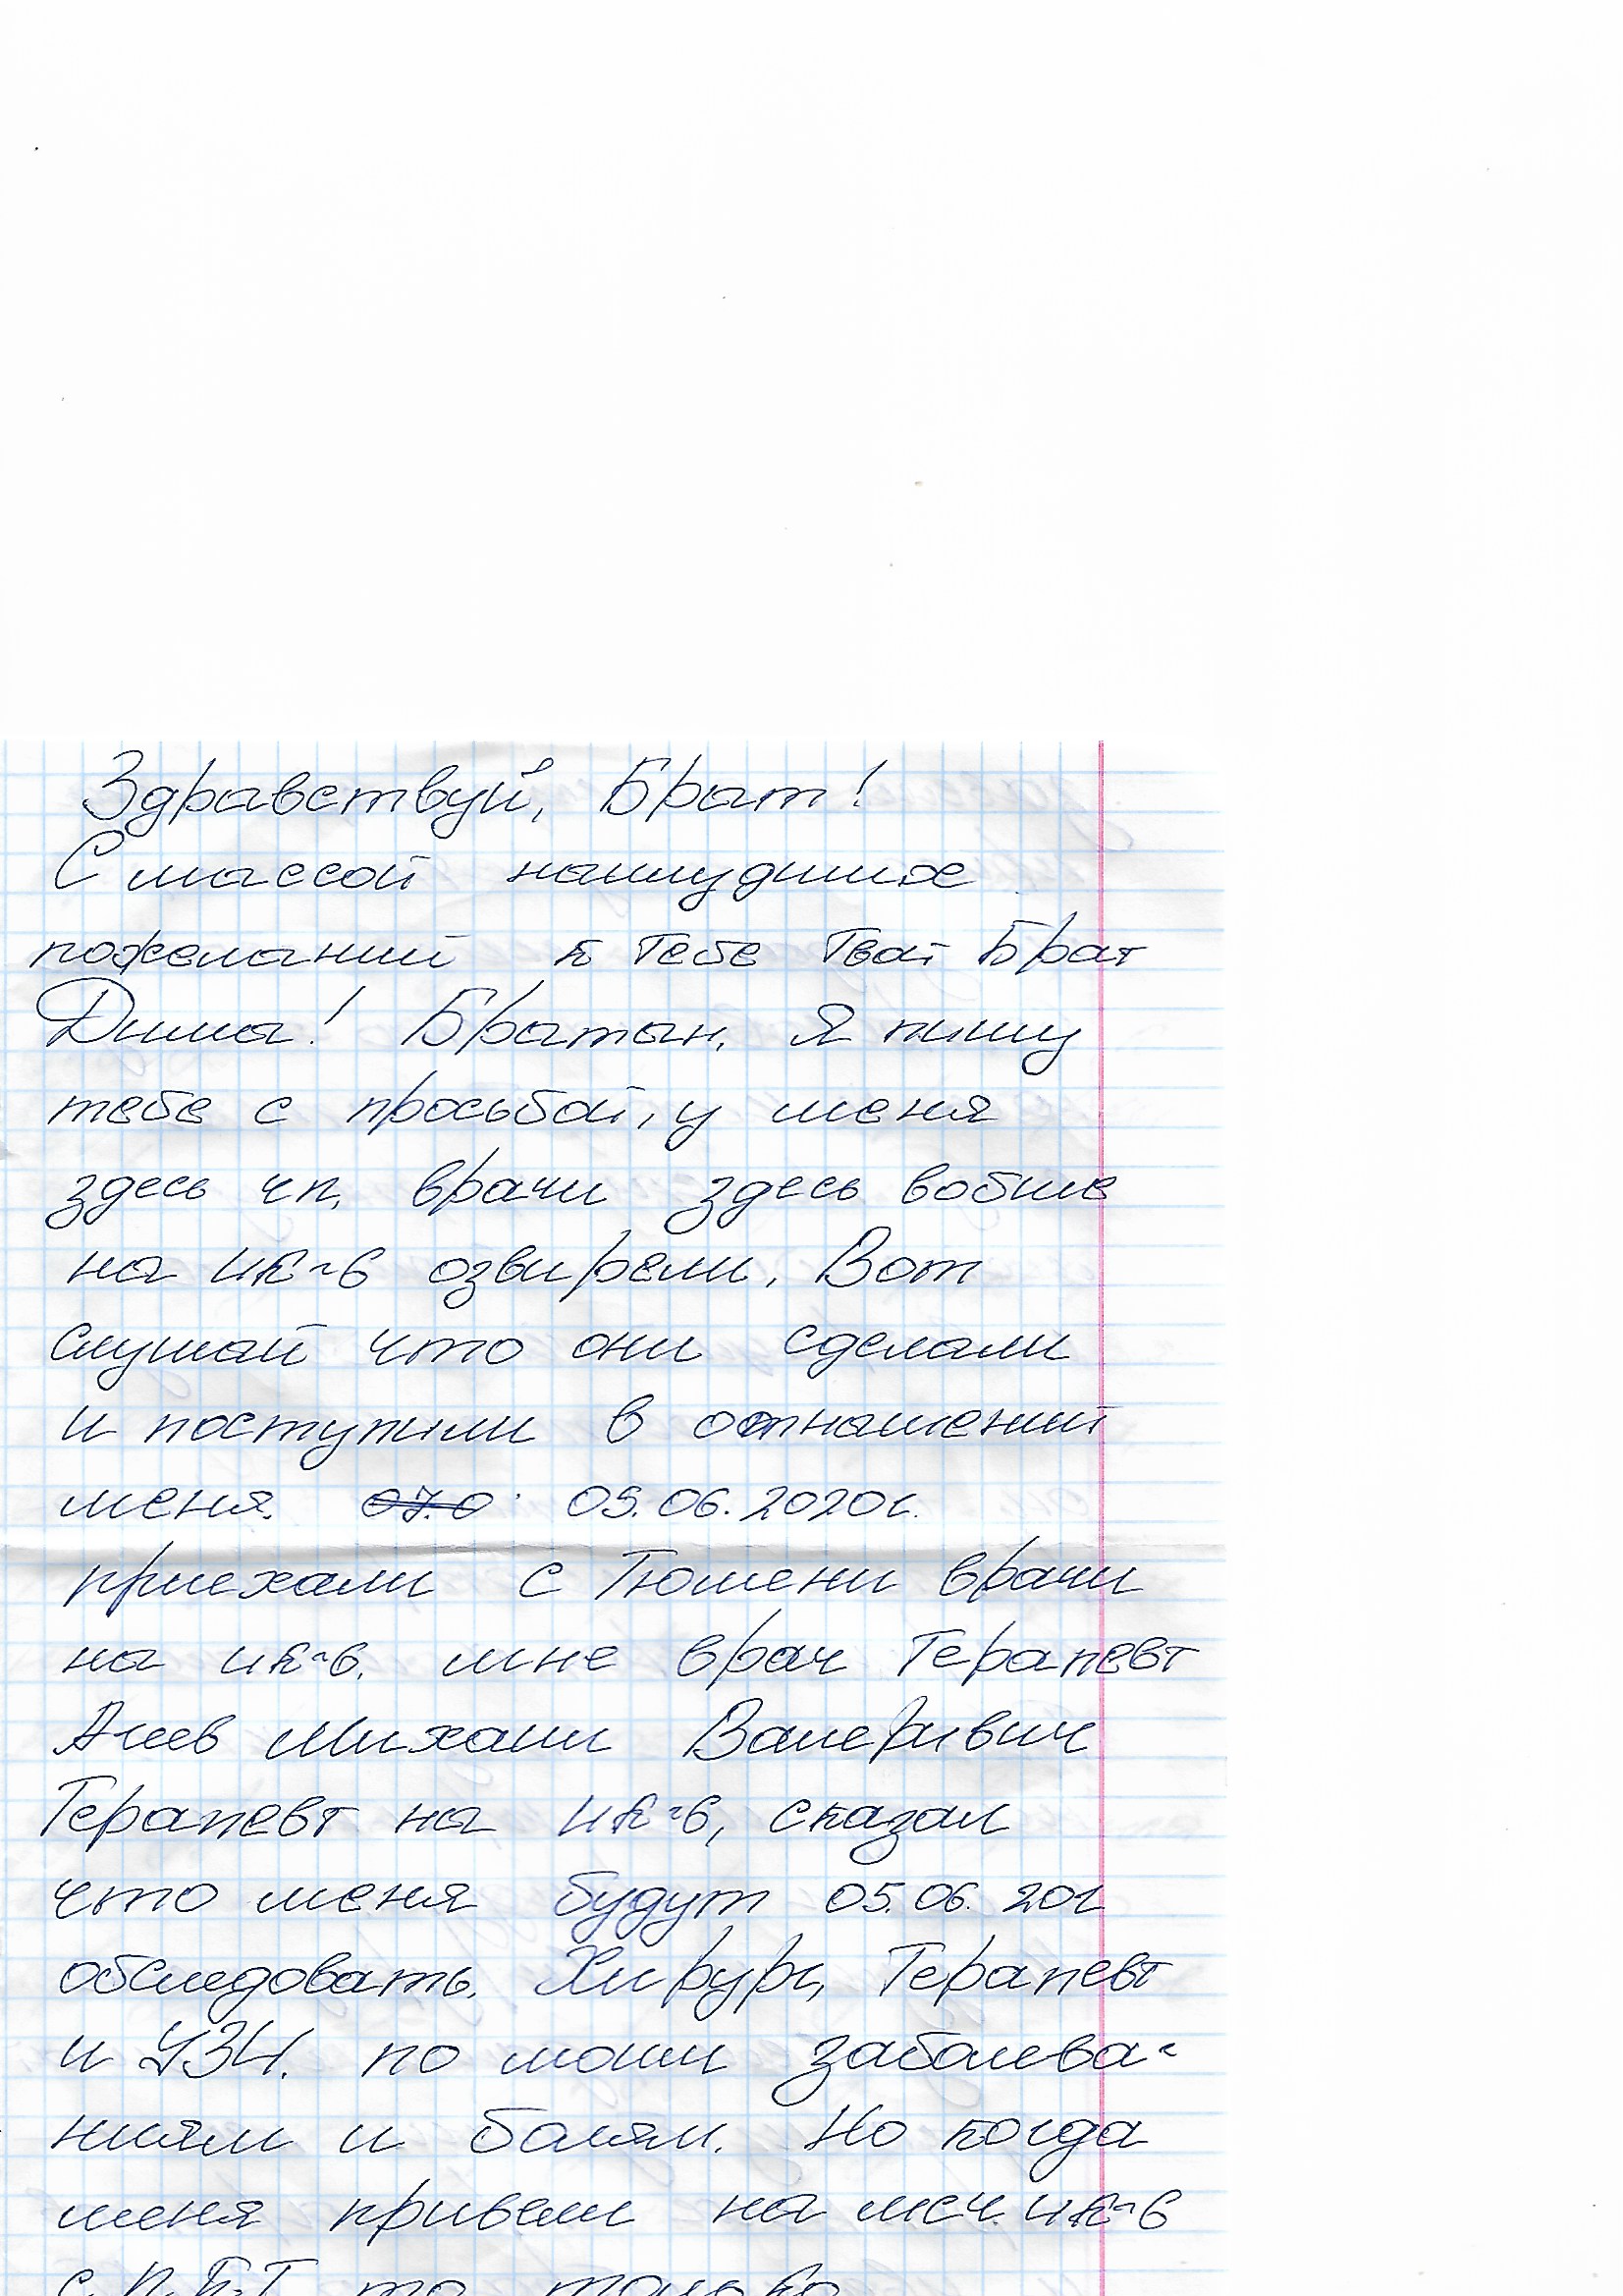 Здравствуй, Брат!
С массой наилудших
пожеланий к Тебе Твой Брат
Дима! Братан, Я пишу
тебе с просьбой, у меня
здесь чп, врачи здесь вобще
на ик-6 озвирели, Вот
слушай что они сделали
и поступили в отнашений
меня. 07.0 05.06.2020г.
приехали с Тюмени врачи
на ик-6. мне врач Терапевт
Алиев Михаил Валеривич
Терапевт на ик-6, сказал
что меня будут 05.06.20г
обследовать. Хирург, Терапевт
и УЗИ. по моим заболева-
ниям и балям. Но когда
меня привели на мсч. ик-6
с П.К.Т то только